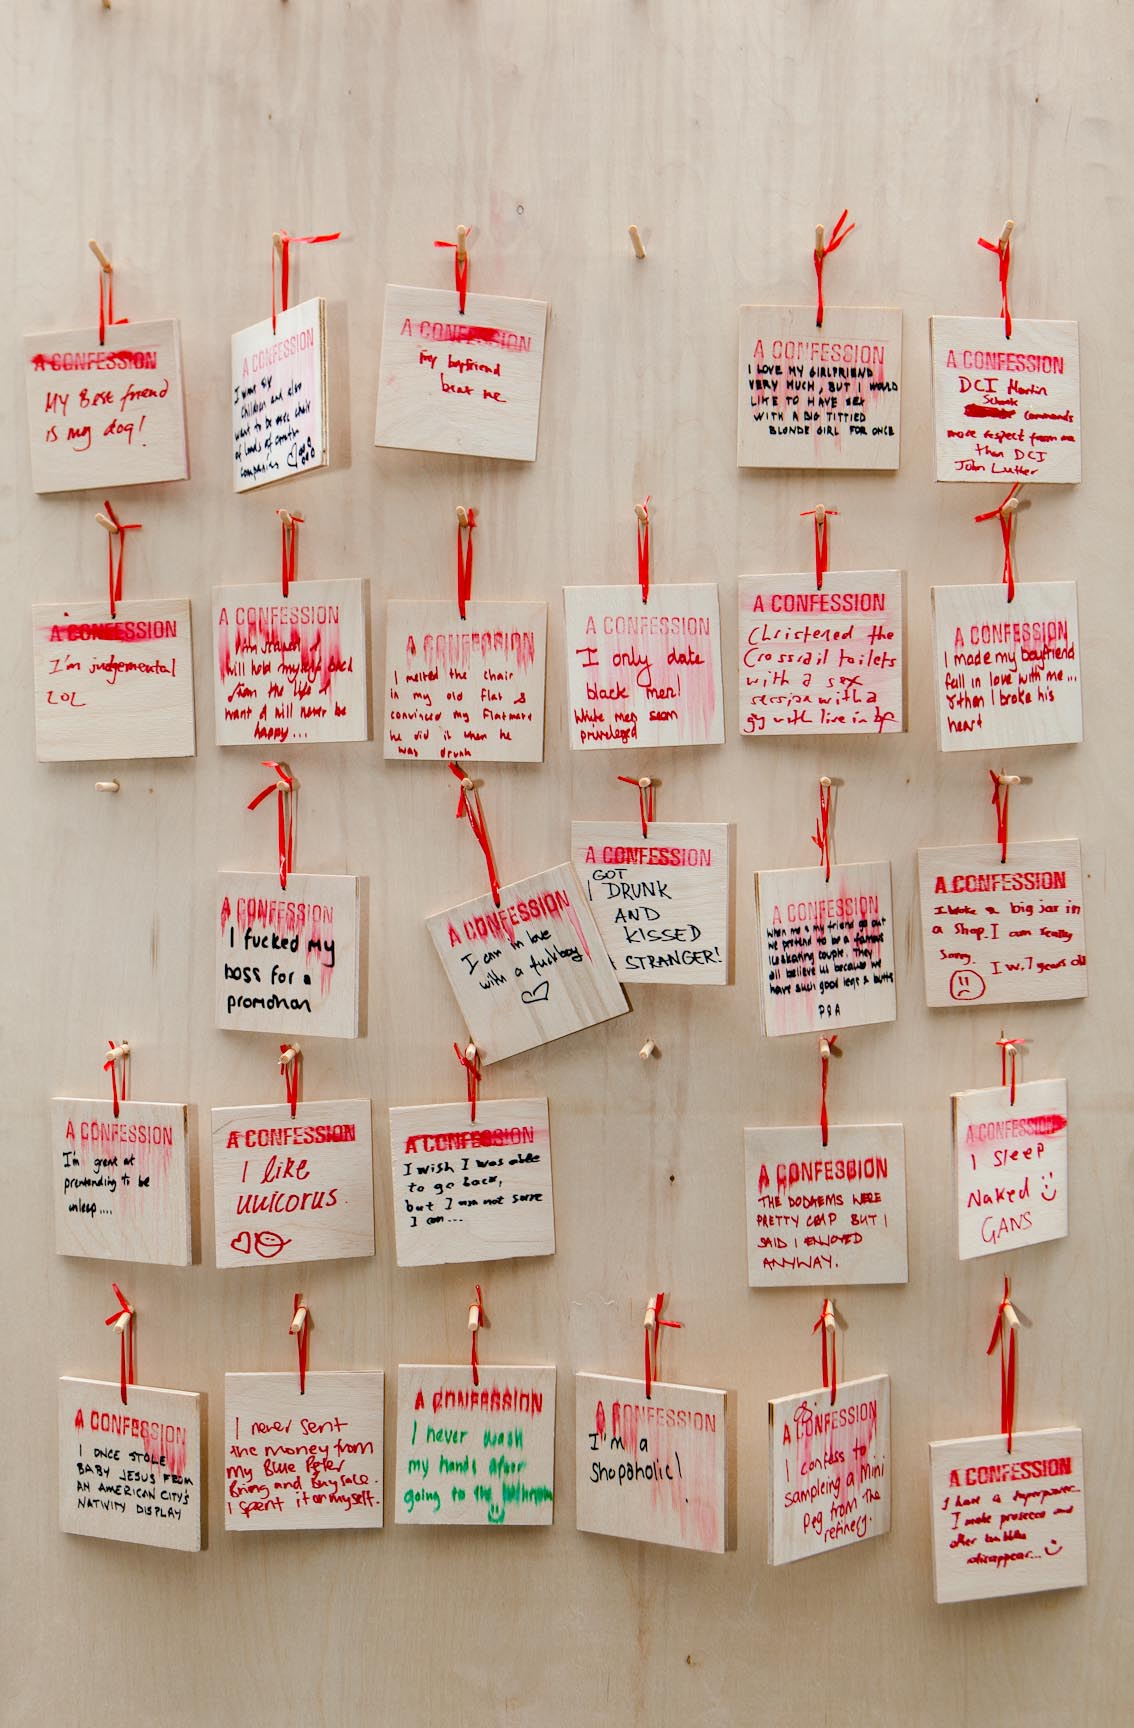 A CONFESSION
My Best friend
is my dog!
A CONFESSION
I want six
children and also
want to be
of loads of
companies
A CONFESSION
my boyfriend
beat me
A CONFESSION
I LOVE MY GIRLFRIEND
VERY MUCH, BUT I WOULD
LIKE TO HAVE SEX
WITH A BIG TITTIED
BLONDE GIRL FOR ONCE
A CONFESSION
DCI Martin
Schenk
commands
more respect from me
than DCI
John Luther
A CONFESSION
I'm judgemental
LOL
A CONFESSION
will hold myself back
from the life I
want & will never be
happy...
A CONFESSION
I melted the chair
in my old flat &
convinced my flatmate
he did it when he
was drunk
A CONFESSION
I only date
black men!
White men seem
privileged
A CONFESSION
Christened the
Crossrail toilets
with a sex
session with a
guy with live in bf
A CONFESSION
I made my boyfriend
fall in love with me...
& then I broke his
heart
A CONFESSION
I fucked my
boss for a
promotion
A CONFESSION
I am in love
with a fuckboy
A CONFESSION
GOT
I DRUNK
AND
KISSED
A STRANGER!
A CONFESSION
When me & my friend go out
we pretend to be a famous
iceskating couple. They
all believe us because we
have such good legs & butts
P&A
A CONFESSION
I broke a big jar in
a shop. I am really
sorry.
I w. 7 years old
A CONFESSION
I'm great at
pretending to be
asleep....
A CONFESSION
I like
unicorns.
A CONFESSION
I wish I was able
to go back,
but I am not sure
I can...
A CONFESSION
THE DODGEMS WERE
PRETTY CRAP BUT I
SAID I ENJOYED
ANYWAY.
A CONFESSION
I Sleep
Naked
GANS
A CONFESSION
I ONCE STOLE
BABY JESUS FROM
AN AMERICAN CITY'S
NATIVITY DISPLAY
I never sent
the money from
my Blue Peter
Bring and Buy Sale.
I spent it on myself.
A CONFESSION
I never wash
my hands after
going to the bathroom
A CONFESSION
I'm a
Shopaholic!
A CONFESSION
I confess to
sampleing a Mini
Peg from the
refinery.
A CONFESSION
I have a superpower.
I make prosecco and
other bubbles
disappear...